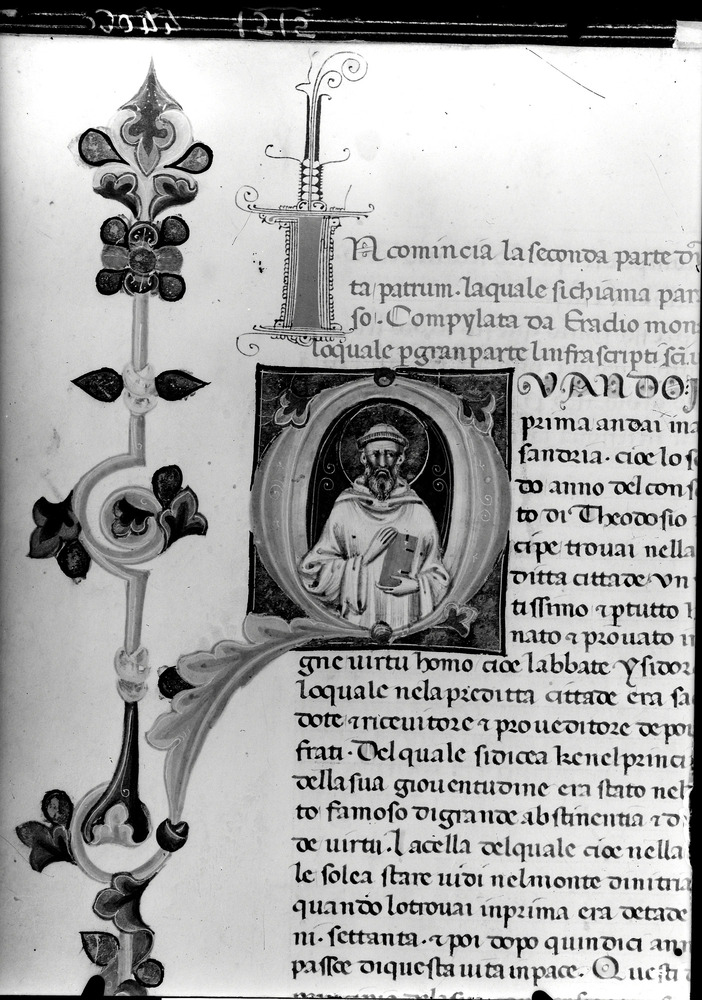 Ncomincia la seconda parte
ta patrum. laquale sichiama
so. Compylata da Eradio
loquale pgranparte linfrascripti
VANDO
prima andai
sandria. cioe lo
do anno delcons
to di Theodosio
cipe trouai nella
ditta cittade vn
tissimo ⁊ ptutto
nato ⁊ prouato
gne uirtu homo cioe labbate ysidor
loquale nelapreditta cittade era sa
dote ⁊riceuitore ⁊ proueditore depo
frati. Del quale sidicea kenelprinci
della sua giouentudine era stato nel
to famoso digrande abstinentia ⁊ d
de uirtu. Lacella delquale cioe nella
le solea stare uidi nelmonte dinitria
quando lotrouai inprima era detade
ni. settanta. ⁊ poi dopo quindici ann
passoe diquesta uita inpace. Questi